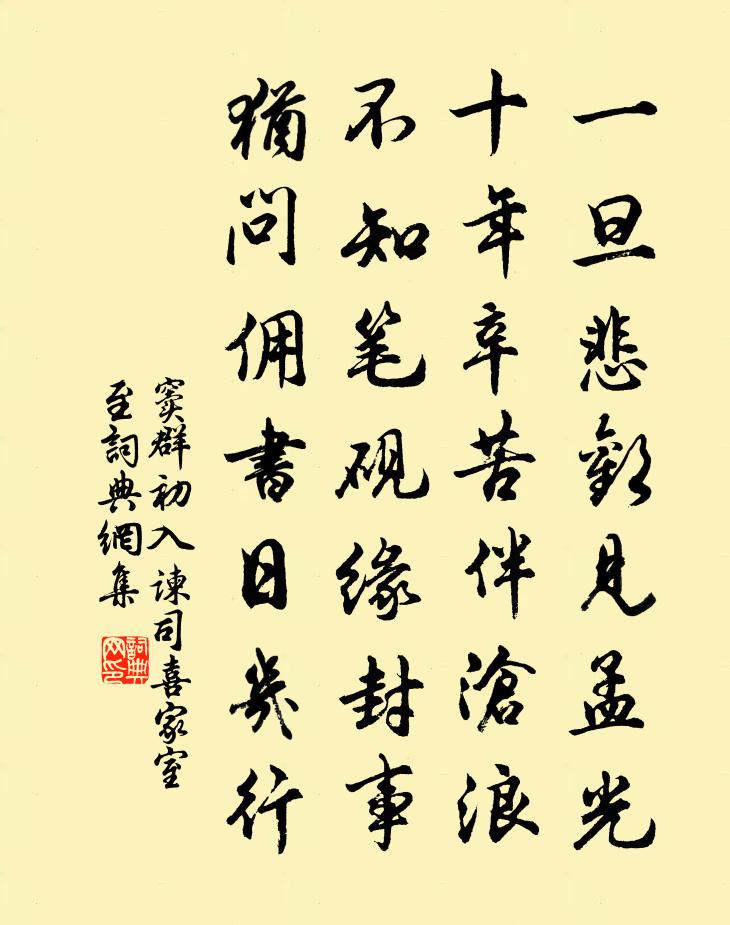 一旦悲歡見孟光
十年辛苦伴滄浪
不知笔硯緣封事
猶問佣書日幾行
竇群初入諫司喜家室
至詞典網集
詞典
网印